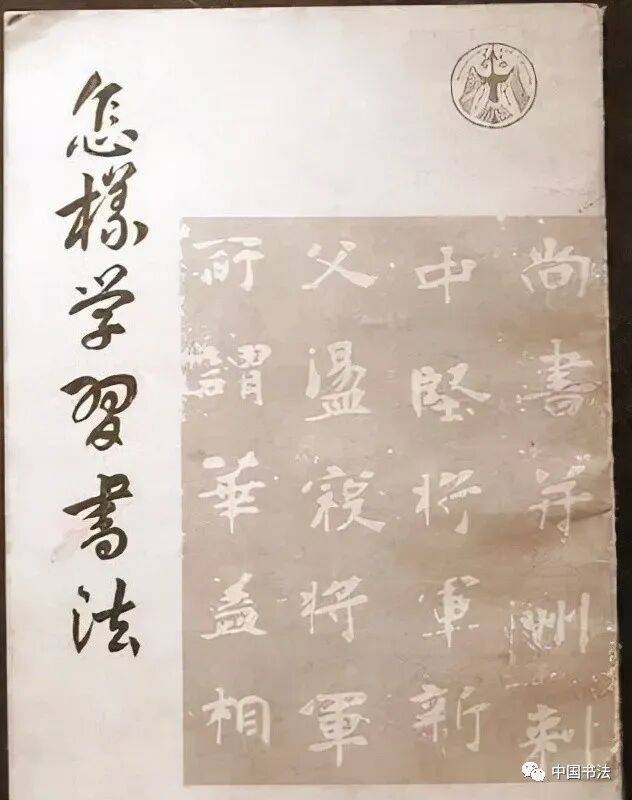 怎樣学習書法
尚書并州刺
中堅将軍新
父盪寇将軍
所謂華盖相
中国书法